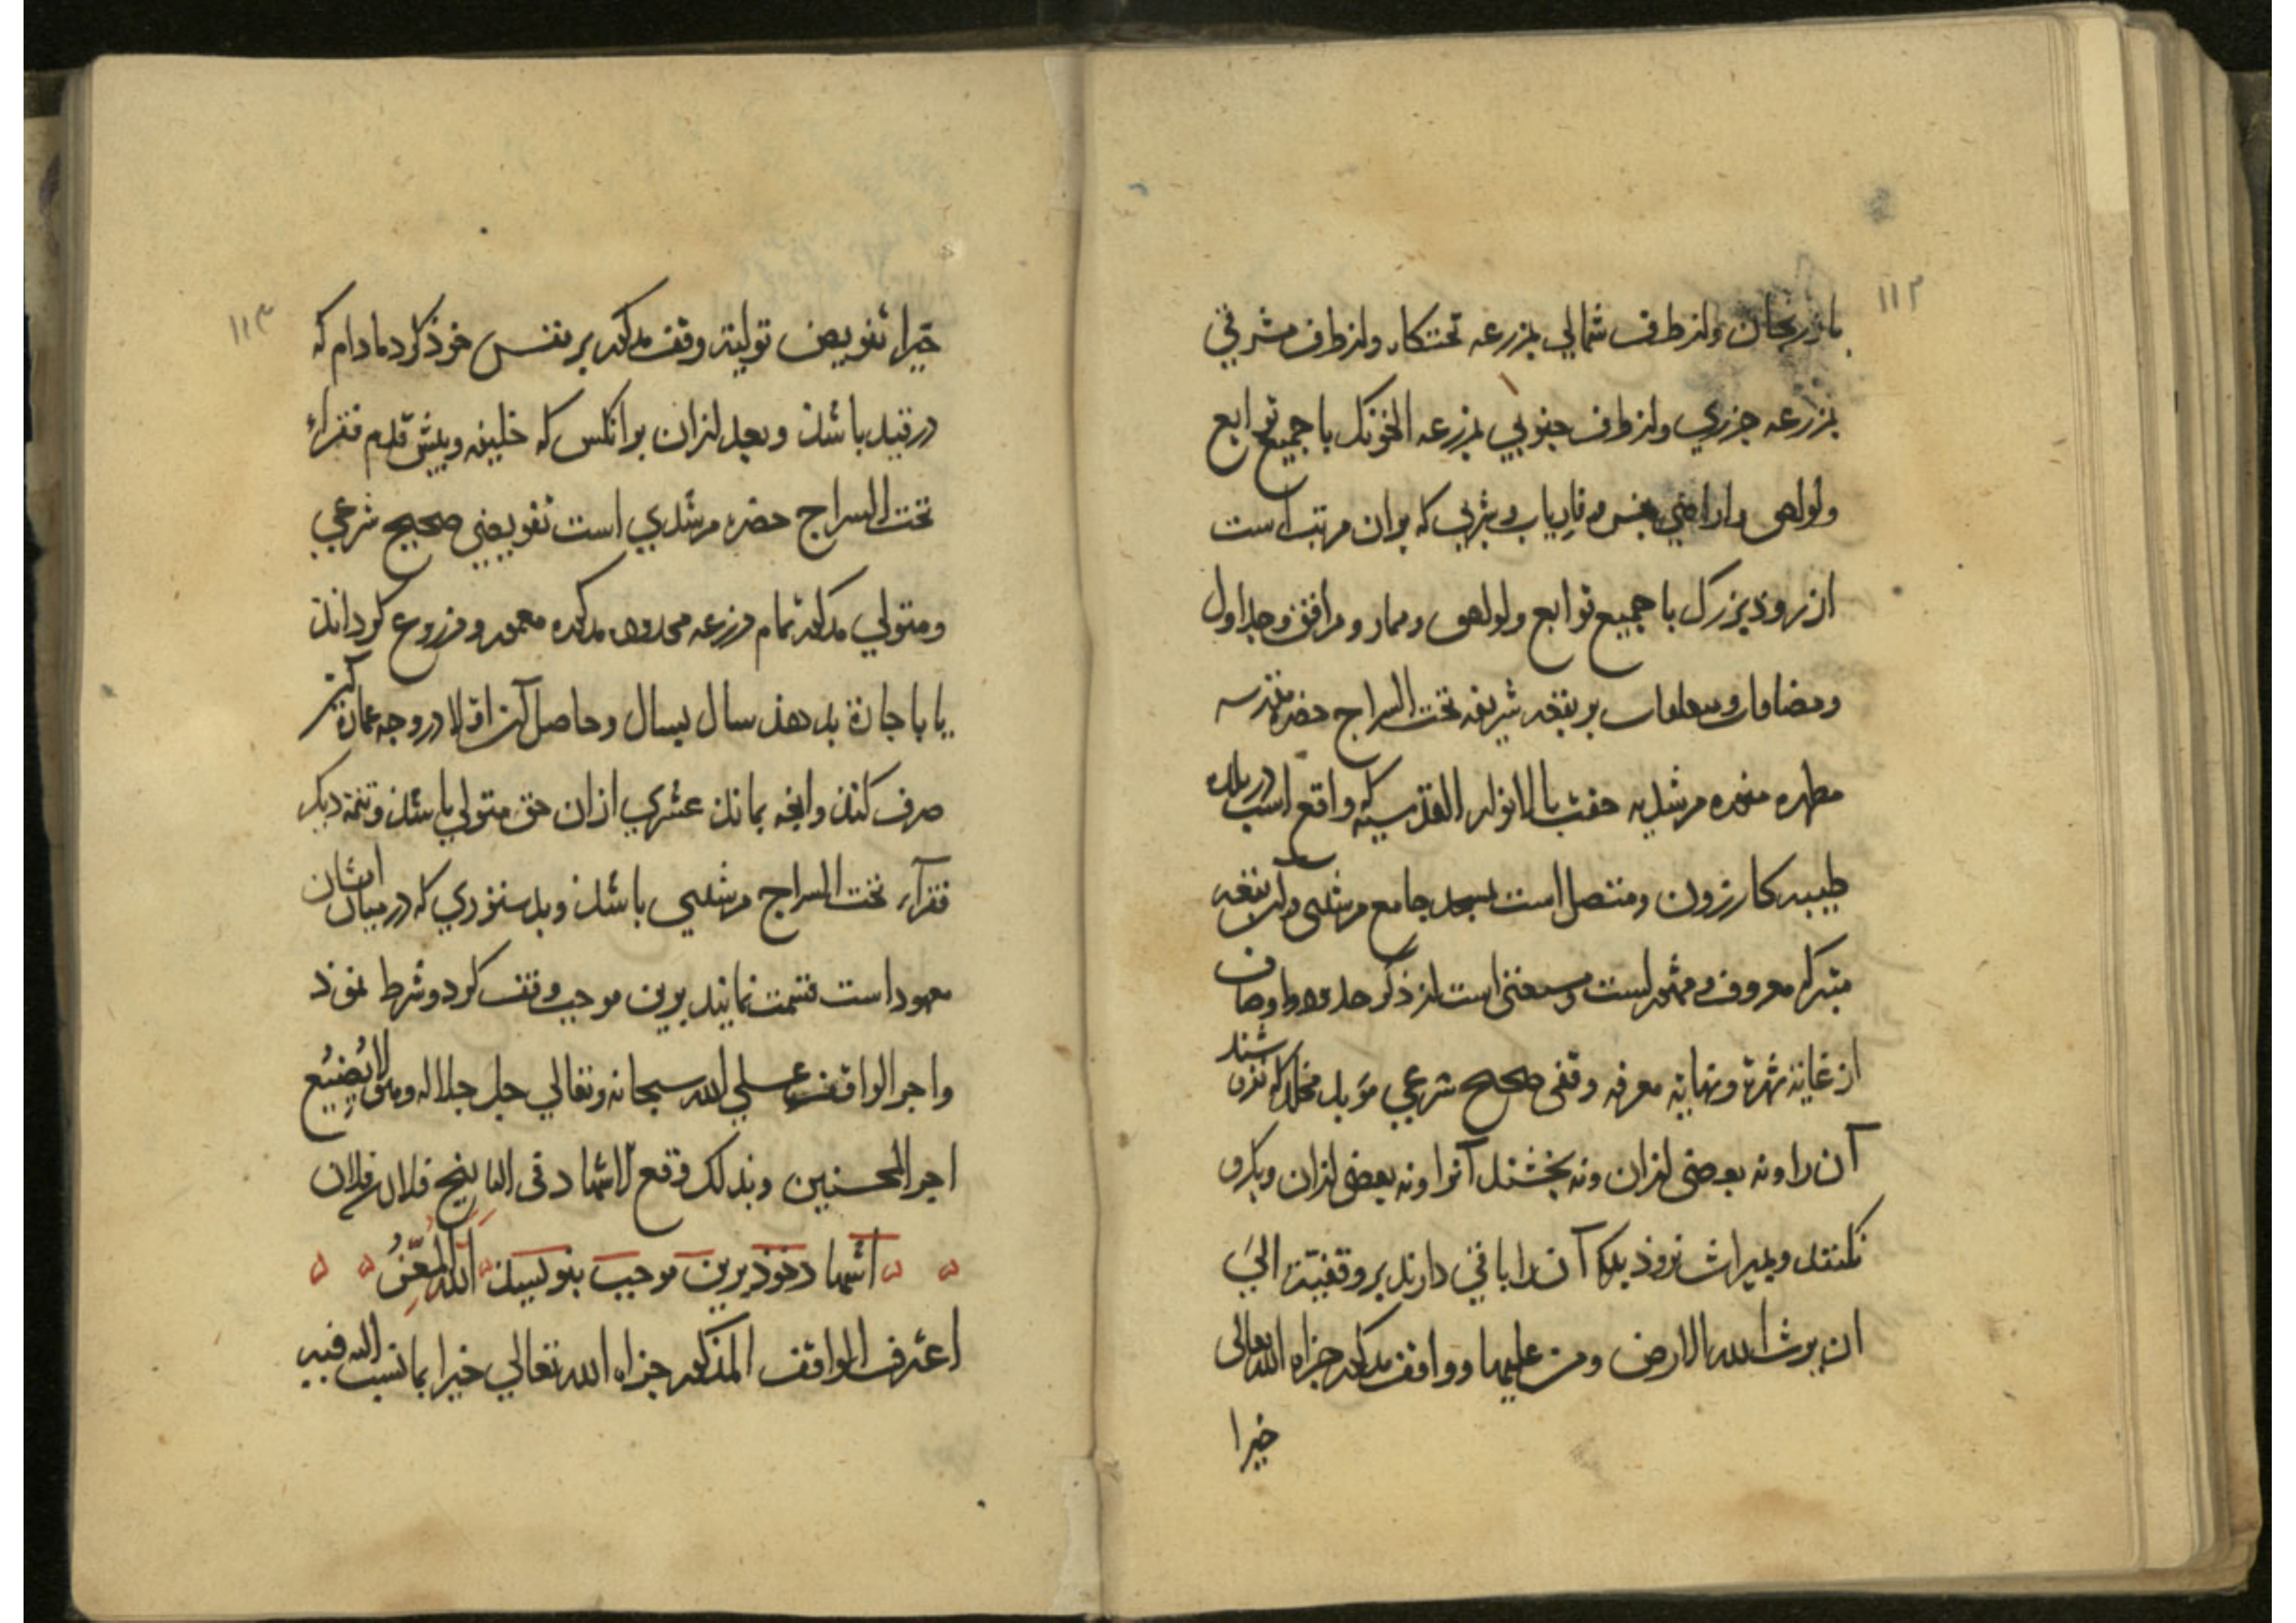 ۱۱۲
بازربجان واز طرف شمالی بمزرعه تختکاه واز طرف مشرقی
بمزرعه جزری واز طرف جنوبی بمزرعه الخونک با جمیع توابع
ولواحق واراضی بخس و فاریاب وشربی که بران مرتب است
از روذ بزرک با جمیع توابع ولواحق وممار ومرافق وجداول
ومضافات ومتعلقات بر بقعه شریفه تحت السراج حضرة مقدسه
مطهره منوره مرشدیه حفت بالانوار القدسیه که واقع است در بلده
طیبه کازرون ومتصل است بمسجد جامع مرشدی وآن بقعه
متبرکه معروف ومشهور است ومستغنی است از ذکر حدود واوصاف
از غایة شهرة ونهایة معرفه وقفی صحیح شرعی مؤبد مخلد که نفروشند
آن را ونه بعضی ازان ونه بخشند آنرا ونه بعضی ازان وبکرو
نکنند وبمیراث نروذ بلکه آن را باقی دارند بر وقفیة الی
ان یرث الله الارض ومن علیها وواقف مذکور جزاه الله تعالی
خیرا
۱۱۳
خیرا تفویض تولیة وقف مذکور بر نفس خوذ کرد مادام که
در قید باشذ وبعد ازان بر انکس که خلیفه وپیش قدم فقراء
تحت السراج حضرة مرشدی است تفویضی صحیح شرعی
ومتولی مذکور تمام مزرعه محدوده مذکوره معمور ومزروع کرداند
یا باجارة بدهذ سال بسال وحاصل آن اولا در وجه عمارة کاریز
صرف کنذ وانچه بمانذ عشری ازان حق متولی باشذ وتتمه دیکر
فقرآء تحت السراج مرشدی باشذ وبدستوری که در میان ایشان
معهود است قسمت نمایند برین موجب وقف کرد وشرط نموذ
واجر الواقف علی الله سبحانه وتعالی جل جلاله وهو لا یُضیعُ
اجر المحسنین وبذلک وقع الاشهاد فی التاریخ فلان فلان
اشهاد خوذ برین موجب بنویسذ الله المُعِزُّ
اعترف الواقف المذکور جزاه الله تعالی خیرا بما نسب الیه فیه